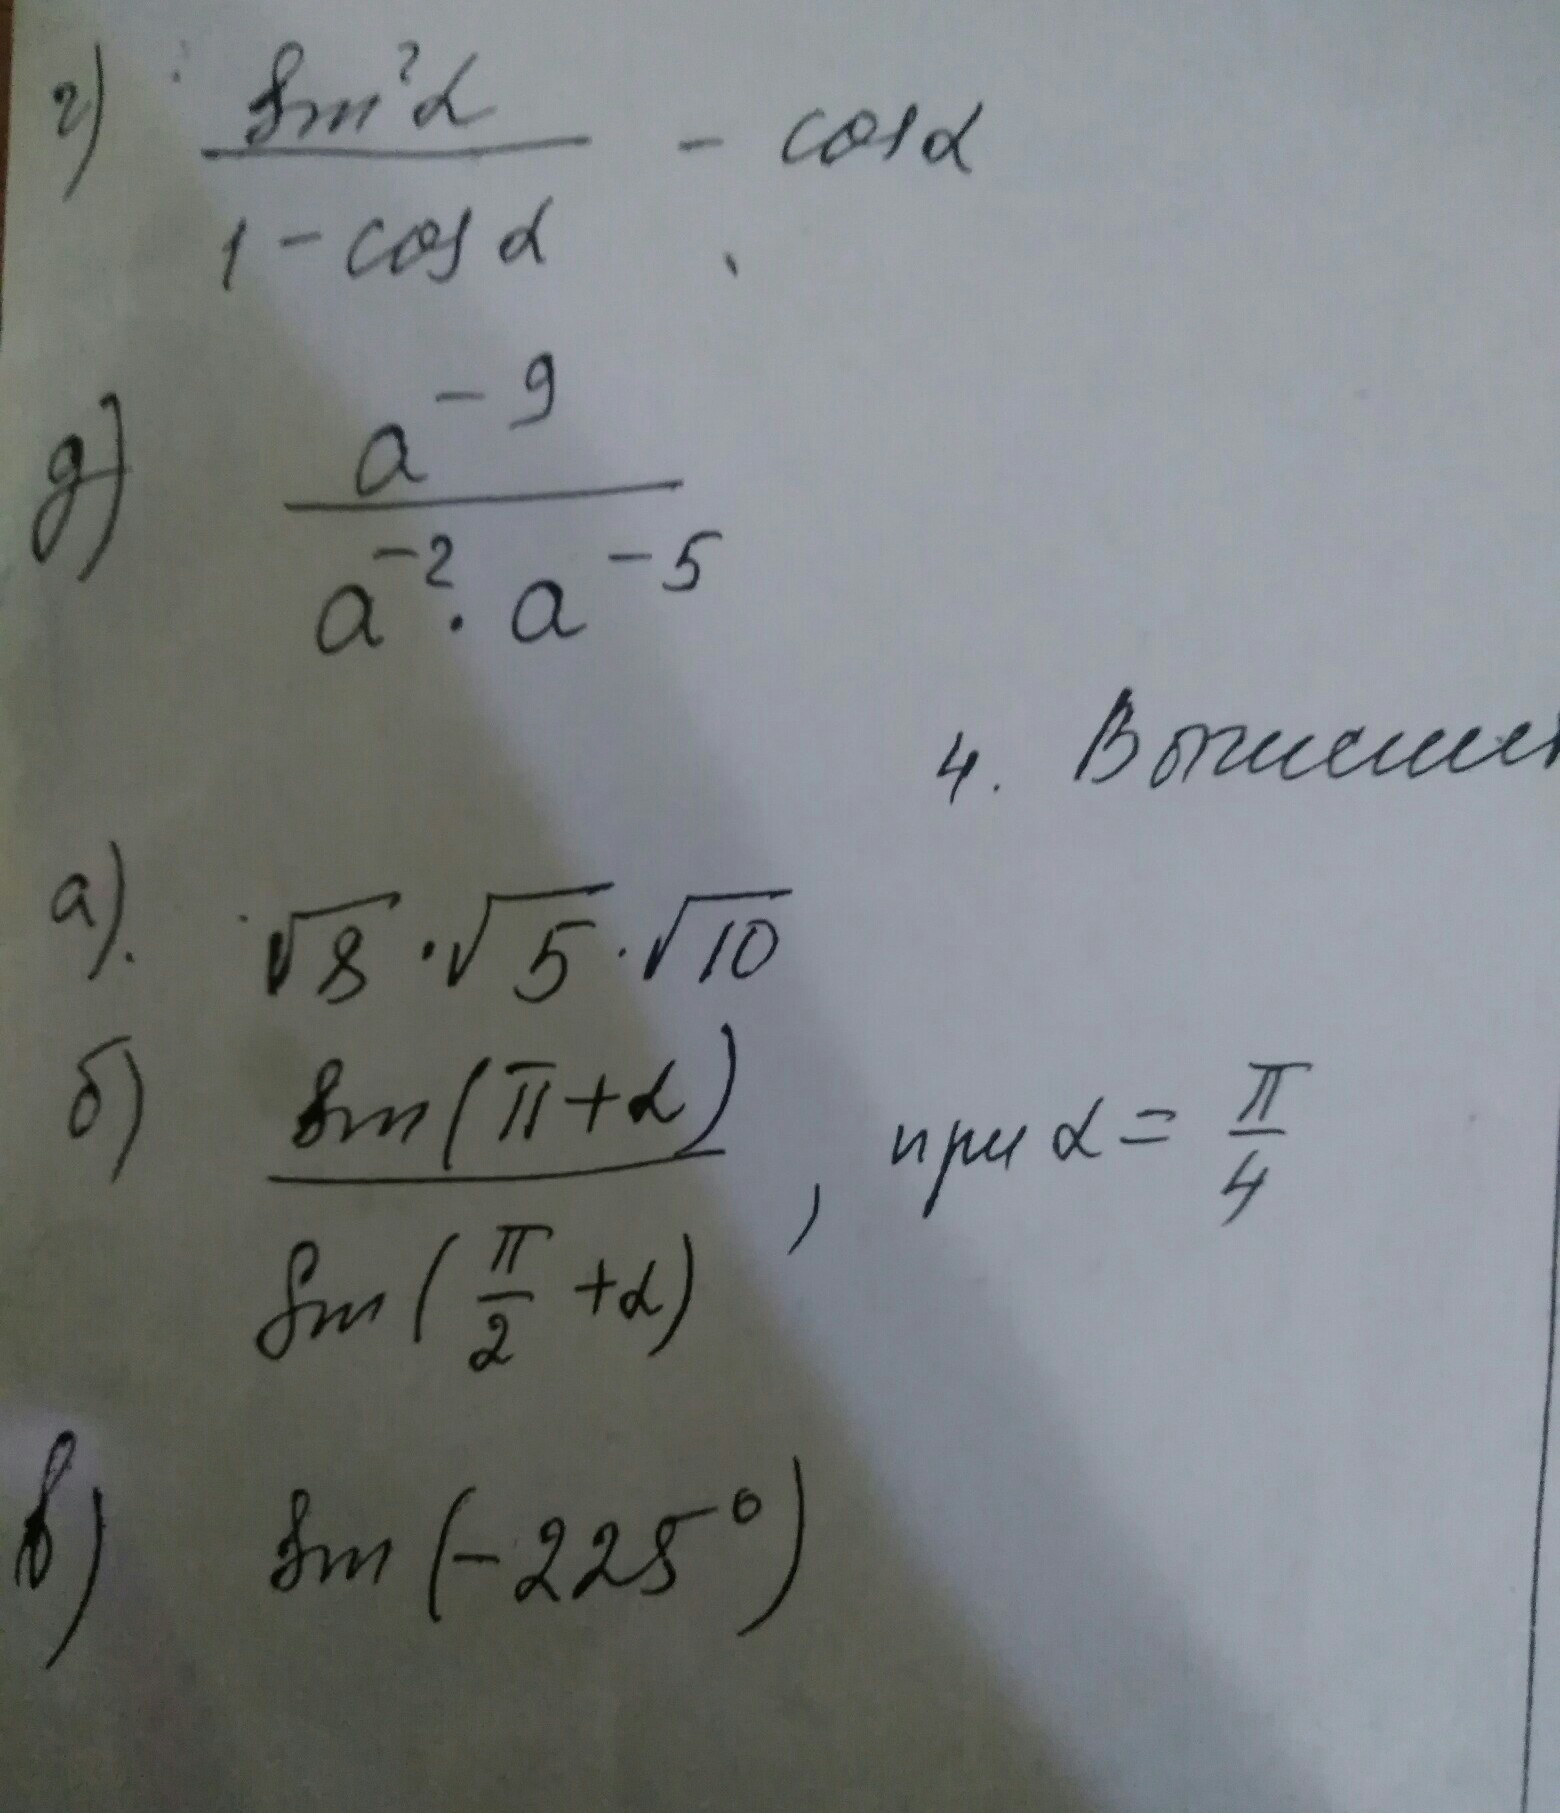 г) sin²α / (1 - cosα) - cosα
д) a⁻⁹ / (a⁻² · a⁻⁵)
4.
а). √8 · √5 · √10
б) sin(π+α) / sin(π/2 +α) , при α = π/4
в) sin(-225°)